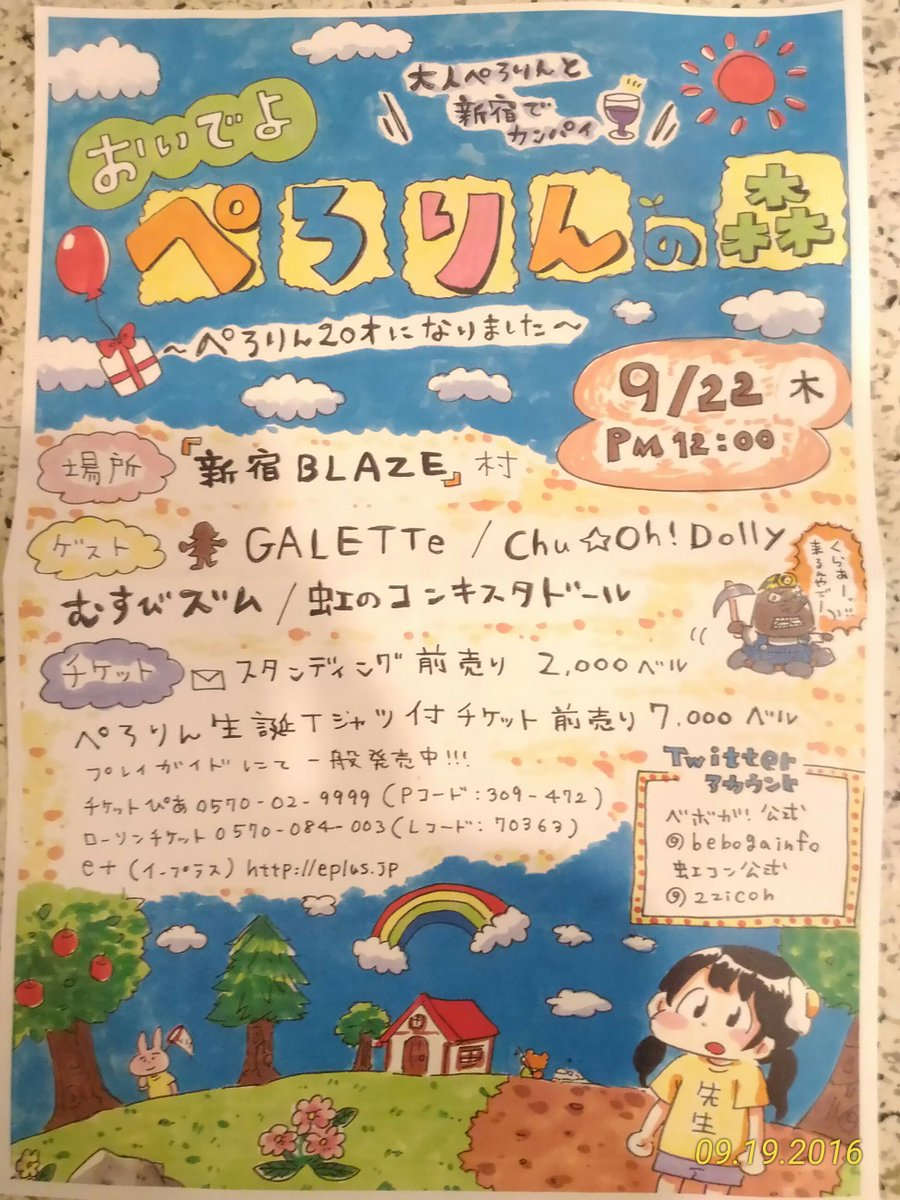 大人ぺろりんと
新宿で
カンパイ
おいでよ
ぺろりんの森
～ぺろりん20才になりました～
9/22 木
PM 12:00
場所 『新宿BLAZE』村
ゲスト GALETTe / Chu☆Oh!Dolly
むすびズム / 虹のコンキスタドール
くらぁー、
来るんやでー!!
チケット スタンディング 前売り 2,000ベル
ぺろりん生誕Tシャツ付チケット 前売り 7,000ベル
プレイガイドにて 一般発売中!!!
チケットぴあ 0570-02-9999 (Pコード:309-472)
ローソンチケット 0570-084-003 (Lコード:70363)
e+ (イープラス) http://eplus.jp
Twitter
アカウント
ベボガ! 公式
@bebogainfo
虹コン公式
@2zicon
先生
09.19.2016